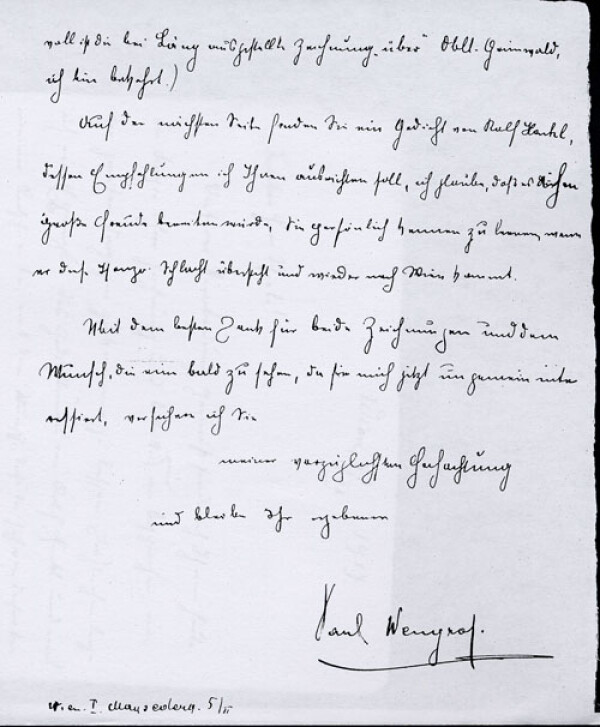 voll ist die bei Läng ausgestellte Zeichnung über Oblt. Grünwald,
ich bin bekehrt.)
Auf der nächsten Seite senden Sie ein Gedicht von Rolf
dessen Empfehlungen ich Ihnen ausrichten soll, ich glaube, daß es
große Freude bereiten würde, Sie persönlich kennen zu lernen, wenn
er diese Isonzo-Schlacht übersteht und wieder nach Wien kommt.
Mit dem besten Dank für beide Zeichnungen und dem
Wunsch, die eine bald zu sehen, da sie mich jetzt ungemein inte
ressiert, versichere ich Sie
meiner vorzüglichsten Hochachtung
und bleibe Ihr ergebener
Paul Wengraf.
Wien. I. 5/II